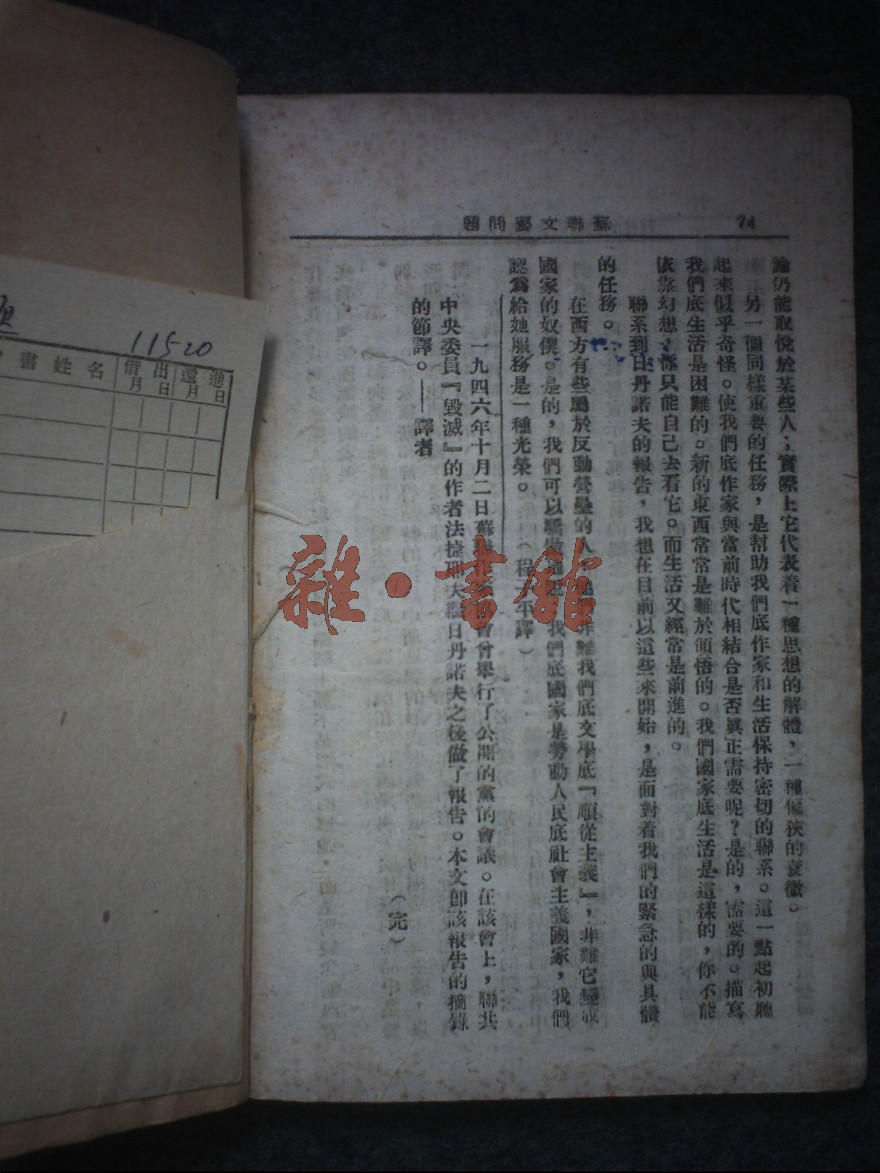 74
蘇聯文藝問題
論仍能取悅於某些人；實際上它代表着一種思想的解體，一種偏狹的衰徵。
另一個同樣重要的任務，是幫助我們底作家和生活保持密切的聯系。這一點起初聽
起來似乎奇怪。使我們底作家與當前時代相結合是否眞正需要呢？是的，需要的。描寫
我們底生活是困難的。新的東西常常是難於領悟的。我們國家底生活是這樣的，你不能
依靠幻想，你只能自己去看它。而生活又經常是前進的。
聯系到日丹諾夫的報告，我想在目前以這些來開始，是面對着我們的緊急的與具體
的任務。
在西方有些屬於反動營壘的人，非難我們底文學底『順從主義』，非難它變成
國家的奴僕。是的，我們可以驕傲，我們底國家是勞動人民底社會主義國家，我們
認爲給她服務是一種光榮。
（程 平譯）
一九四六年十月二日蘇聯作家協會會舉行了公開的黨的會議。在該會上，聯共
中央委員『毀滅』的作者法捷耶夫繼日丹諾夫之後做了報告。本文卽該報告的摘錄
的節譯。——譯者
（完）
11520
書 姓 名
借月 出日
還月 進日
雜·書館